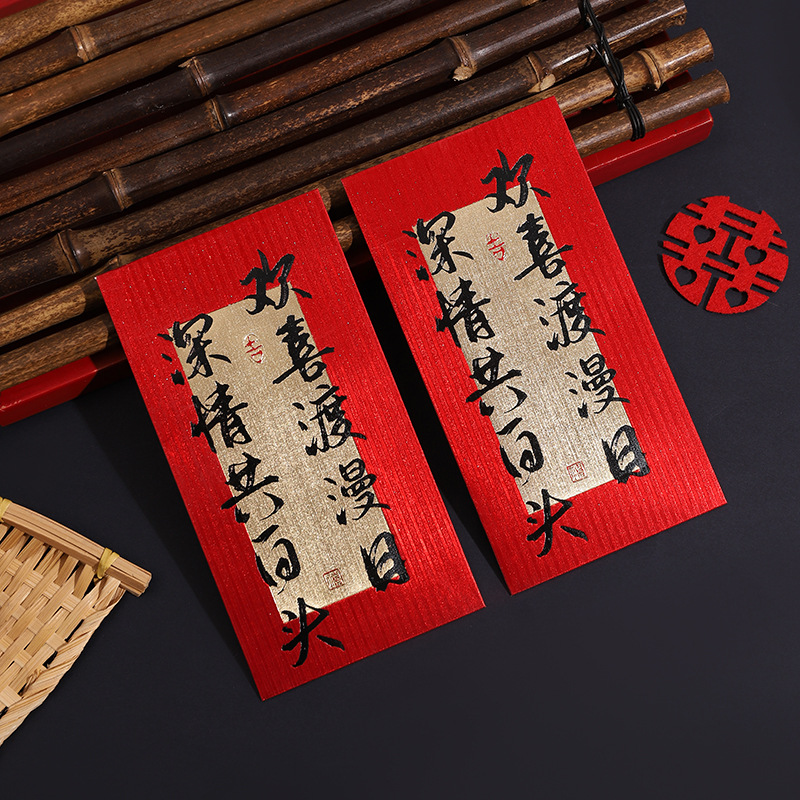 欢喜渡漫日
深情共白头
欢喜渡漫日
深情共白头
囍